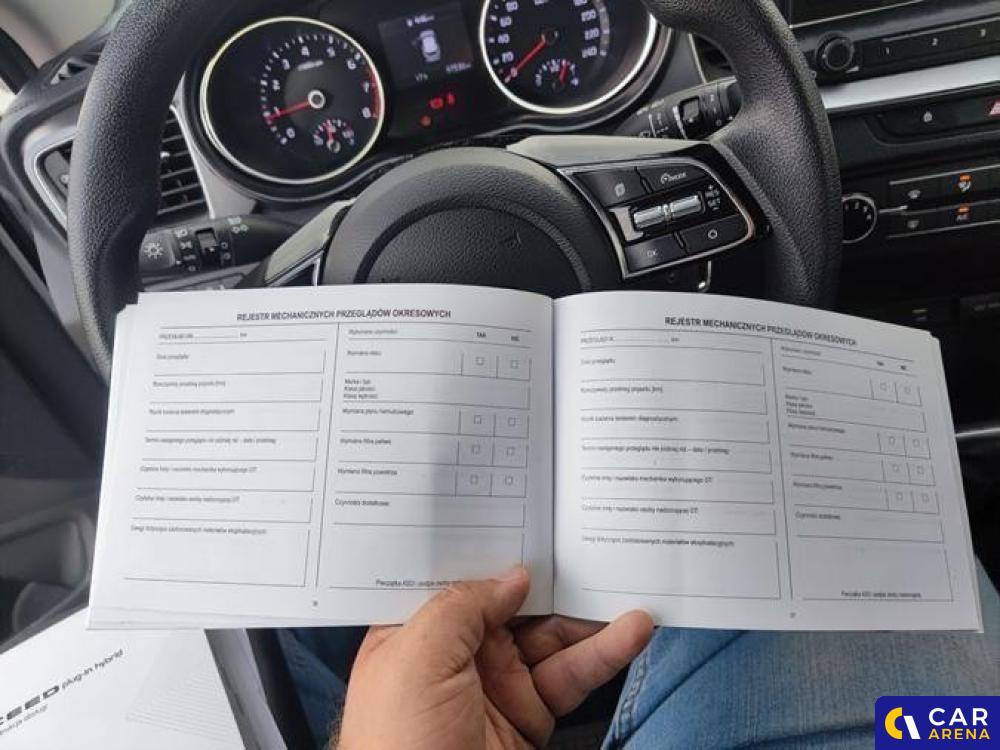 1 2 3
RES
SET
OK
A/C
REJESTR MECHANICZNYCH PRZEGLĄDÓW OKRESOWYCH
PRZEGLĄD PO km
Data przeglądu:
Rzeczywisty przebieg pojazdu [km]:
Wynik badania testerem diagnostycznym:
Termin następnego przeglądu nie później niż - data / przebieg:
Czytelne imię i nazwisko mechanika wykonującego OT:
Czytelne imię i nazwisko osoby nadzorującej OT:
Uwagi dotyczące zastosowanych materiałów eksploatacyjnych:
Wykonano czynności: TAK NIE
Wymiana oleju:
Marka / typ:
Klasa jakości:
Klasa lepkości:
Wymiana płynu hamulcowego:
Wymiana filtra paliwa:
Wymiana filtra powietrza:
Czynności dodatkowe:
Pieczątka ASO i podpis
36
REJESTR MECHANICZNYCH PRZEGLĄDÓW OKRESOWYCH
km
Data przeglądu:
Rzeczywisty przebieg pojazdu [km]:
Wynik badania testerem diagnostycznym:
Termin następnego przeglądu nie później niż – data / przebieg:
Czytelne imię i nazwisko mechanika wykonującego OT:
Czytelne imię i nazwisko osoby nadzorującej OT:
Uwagi dotyczące zastosowanych materiałów eksploatacyjnych:
Wykonano czynności: TAK NIE
Wymiana oleju:
Marka / typ:
Klasa jakości:
Klasa lepkości:
Wymiana płynu hamulcowego:
Wymiana filtra paliwa:
Wymiana filtra powietrza:
Czynności dodatkowe:
Pieczątka ASO i podpis osoby nadzorującej
37
CEED plug-in hybrid
obsługi
CAR
ARENA